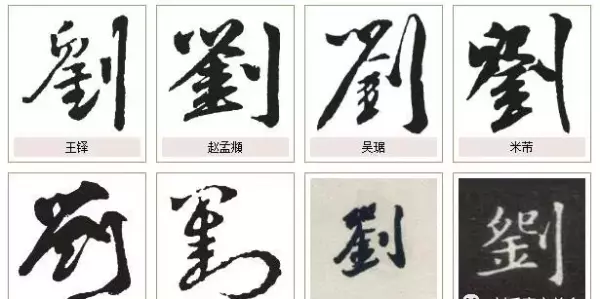 劉 劉 劉 劉
王铎 赵孟頫 吴琚 米芾
劉 劉 劉 劉